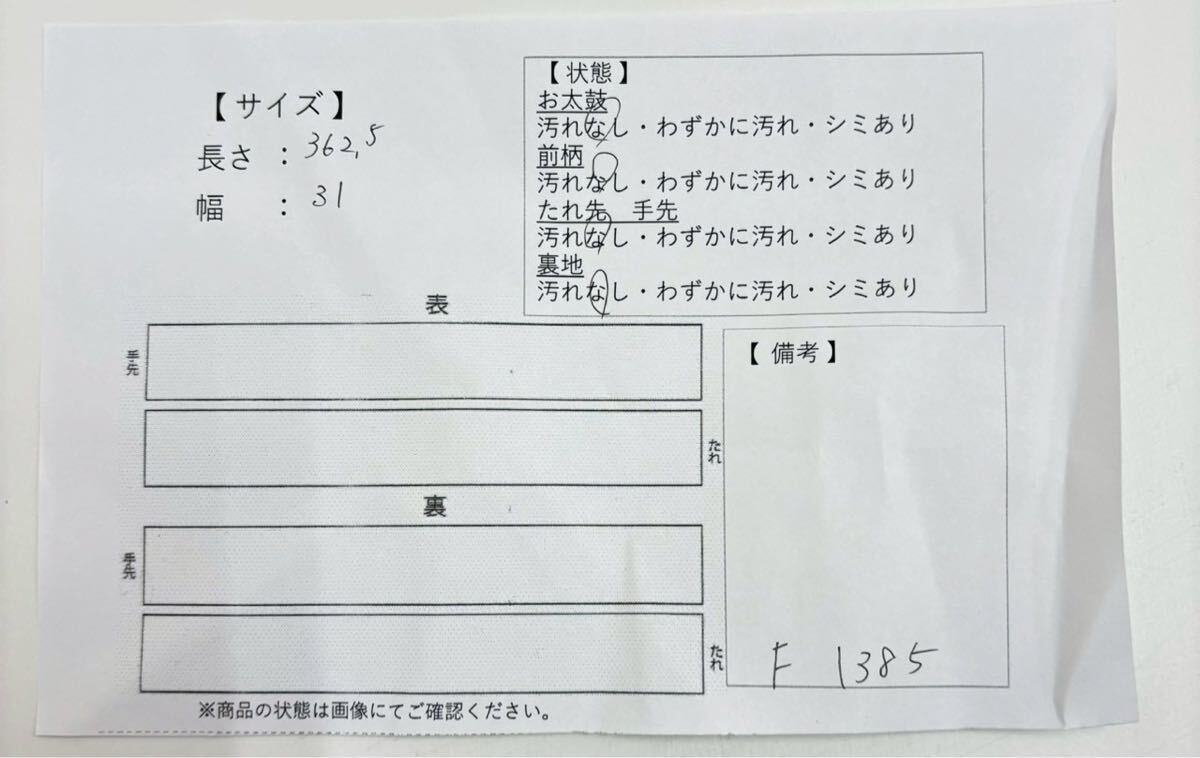 【サイズ】
長さ ：362.5
幅 ：31
【状態】
お太鼓
汚れなし・わずかに汚れ・シミあり
前柄
汚れなし・わずかに汚れ・シミあり
たれ先 手先
汚れなし・わずかに汚れ・シミあり
裏地
汚れなし・わずかに汚れ・シミあり
表
手先
たれ
裏
手先
たれ
【備考】
F 1385
※商品の状態は画像にてご確認ください。